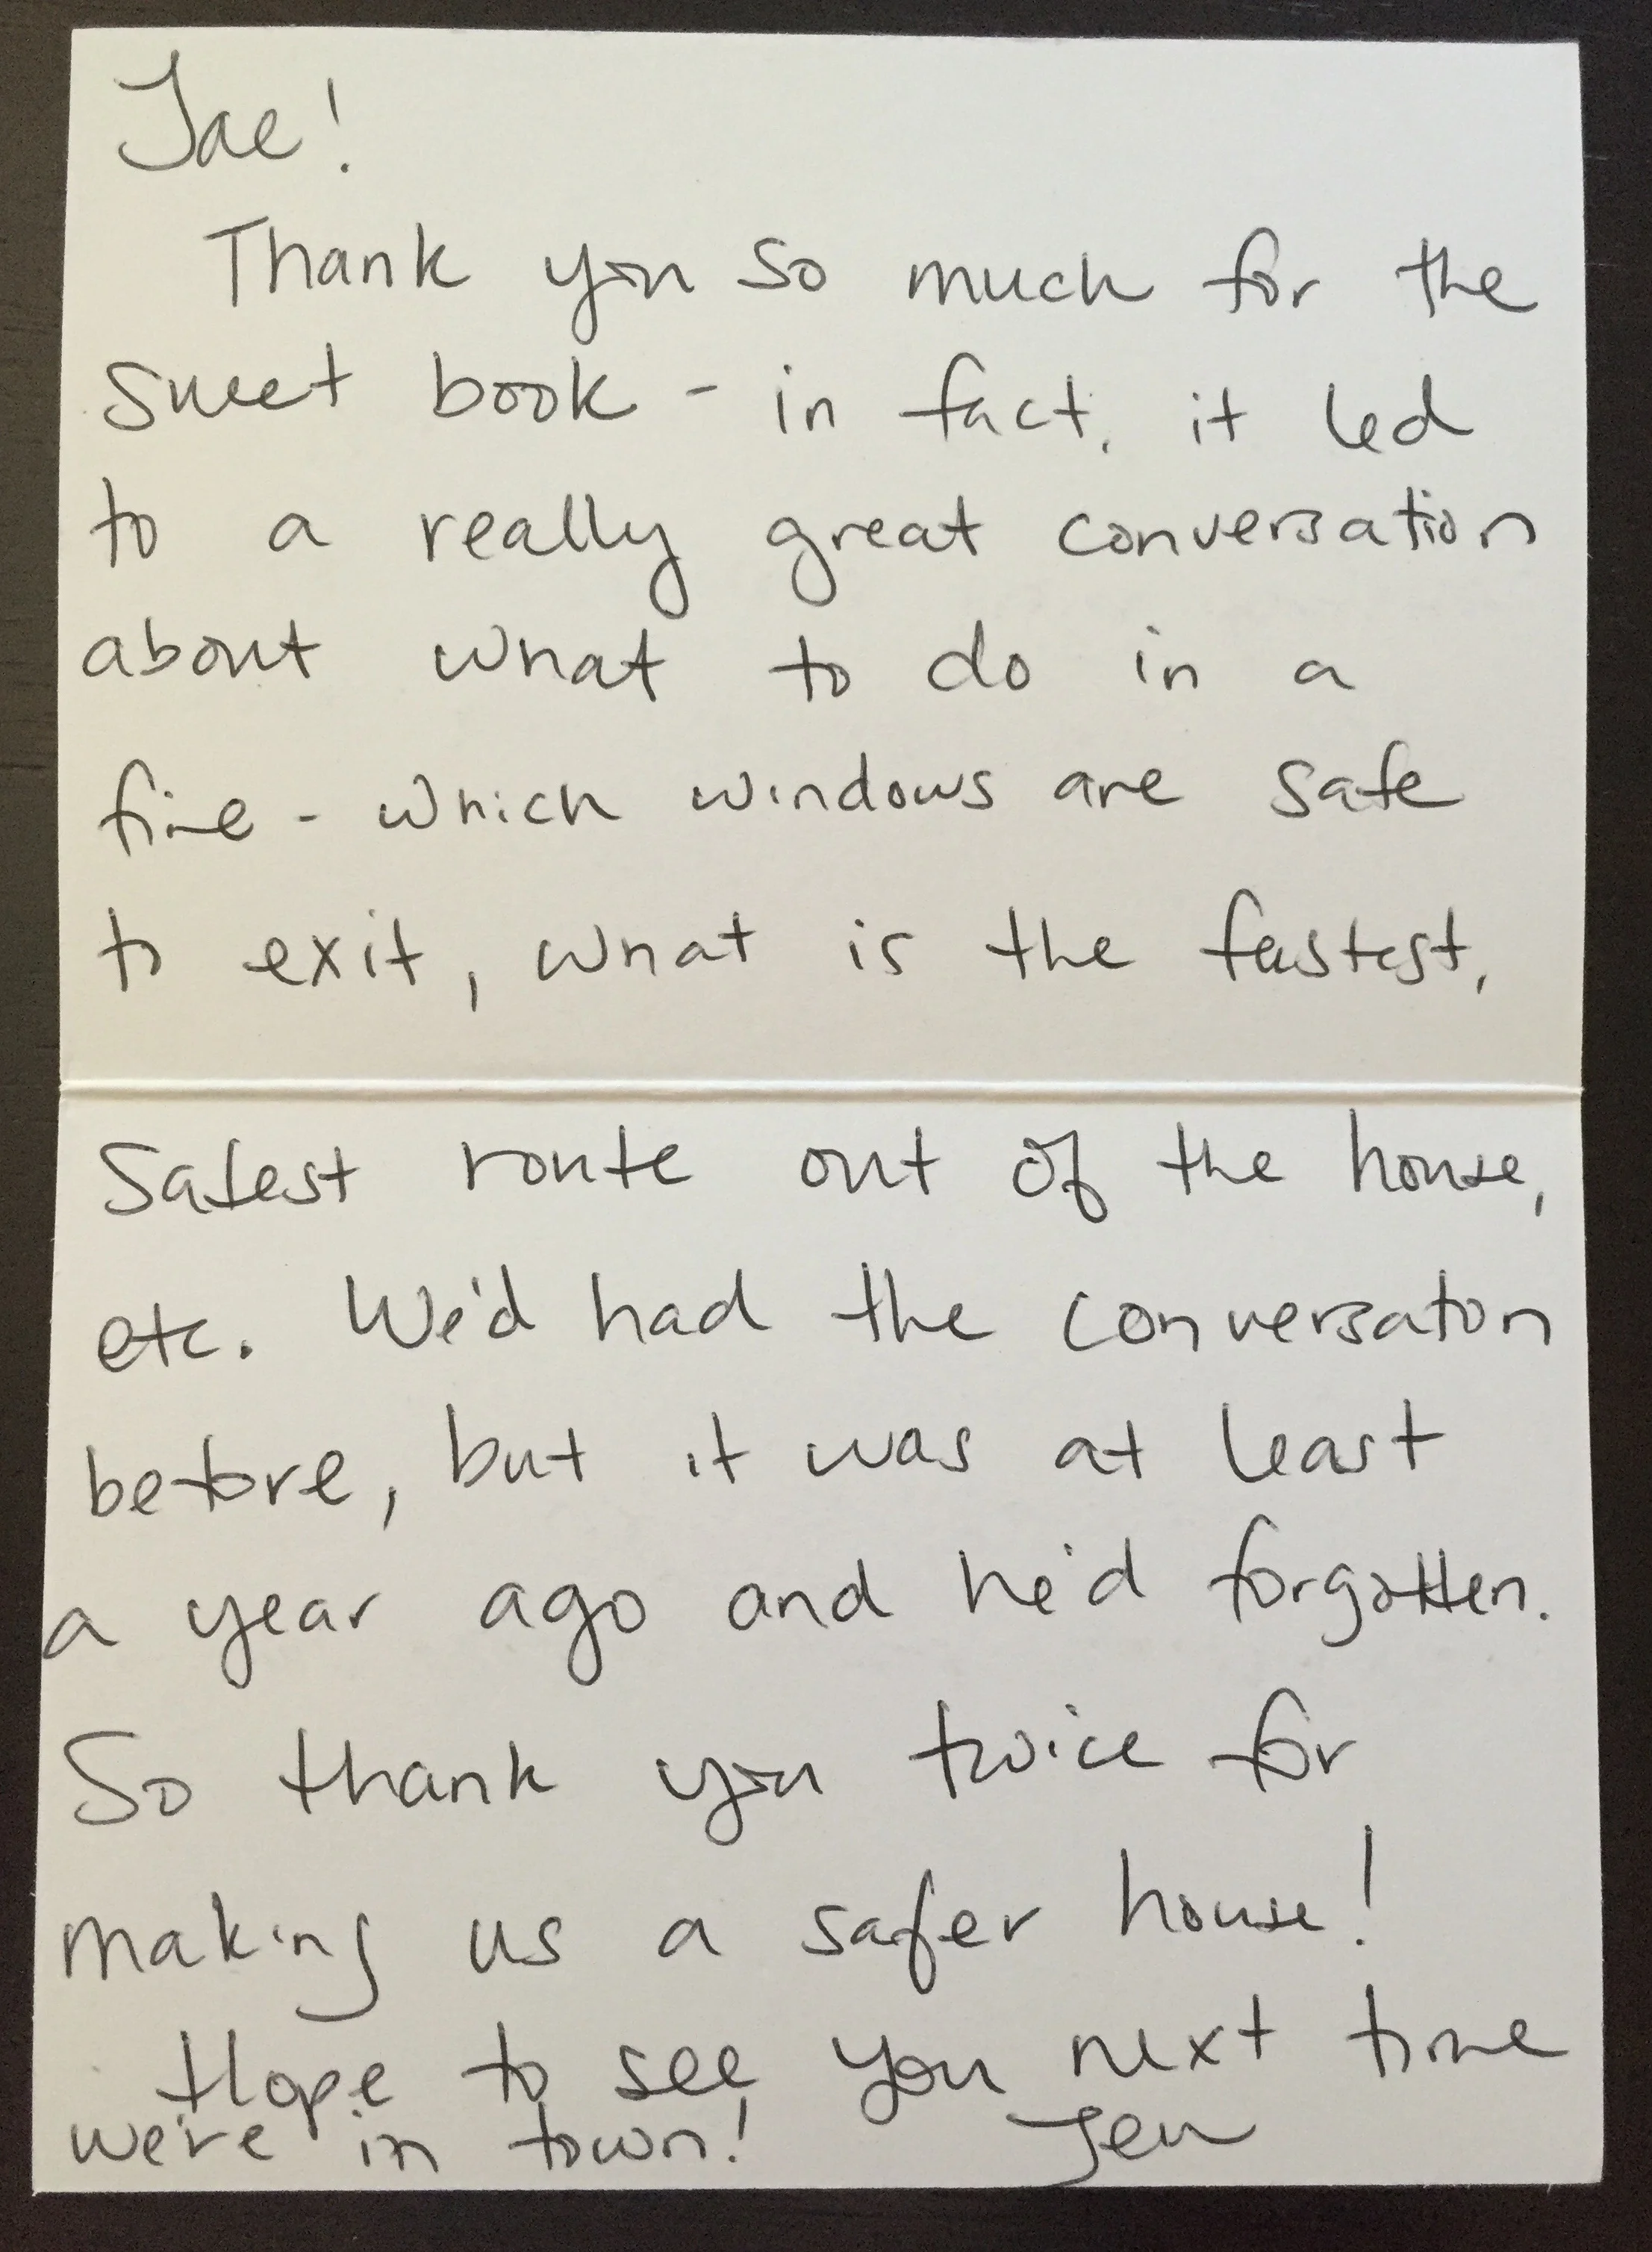 Jae!
Thank you so much for the
sweet book - in fact, it led
to a really great conversation
about what to do in a
fire - which windows are safe
to exit, what is the fastest,
safest route out of the house,
etc. We'd had the conversaton
before, but it was at least
a year ago and he'd forgotten.
So thank you twice for
making us a safer house!
Hope to see you next time
we're in town! Jen